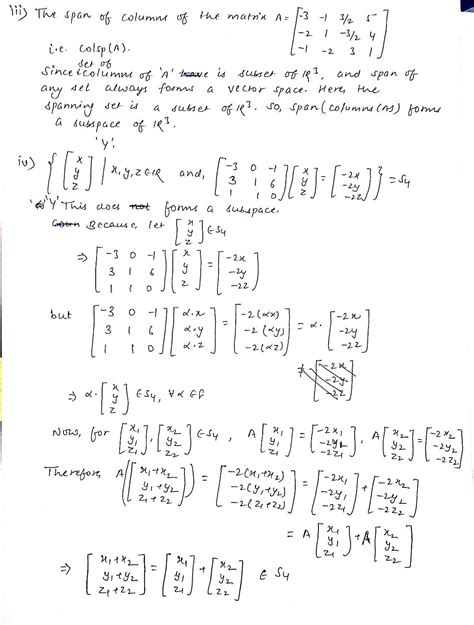 iii) The span of columns of the matrix A = [-3 -1 3/2 5
-2 1 -3/2 4
-1 -2 3 1]
i.e. Colsp(A).
set of
Since columns of 'A' is subset of ℝ³, and span of
any set always forms a vector space. Here, the
spanning set is a subset of ℝ³. So, span(columns(A)) forms
a subspace of ℝ³.
'Y'
iv) { [x y z] | x, y, z ∈ ℝ and, [-3 0 -1; 3 1 6; 1 1 0] [x y z] = [-2x -2y -2z] } = S4
'Y' This does not forms a subspace.
Because, let [x y z] ∈ S4
⇒ [-3 0 -1; 3 1 6; 1 1 0] [x y z] = [-2x -2y -2z]
but [-3 0 -1; 3 1 6; 1 1 0] [α.x α.y α.z] = [-2(αx) -2(αy) -2(αz)] = α. [-2x -2y -2z]
≠ [-2x -2y -2z]
⇒ α. [x y z] ∈ S4, ∀ α ∈ F
Now, for [x1 y1 z1], [x2 y2 z2] ∈ S4, A [x1 y1 z1] = [-2x1 -2y1 -2z1], A [x2 y2 z2] = [-2x2 -2y2 -2z2]
Therefore, A([x1+x2 y1+y2 z1+z2]) = [-2(x1+x2) -2(y1+y2) -2(z1+z2)] = [-2x1 -2y1 -2z1] + [-2x2 -2y2 -2z2]
= A [x1 y1 z1] + A [x2 y2 z2]
⇒ [x1+x2 y1+y2 z1+z2] = [x1 y1 z1] + [x2 y2 z2] ∈ S4